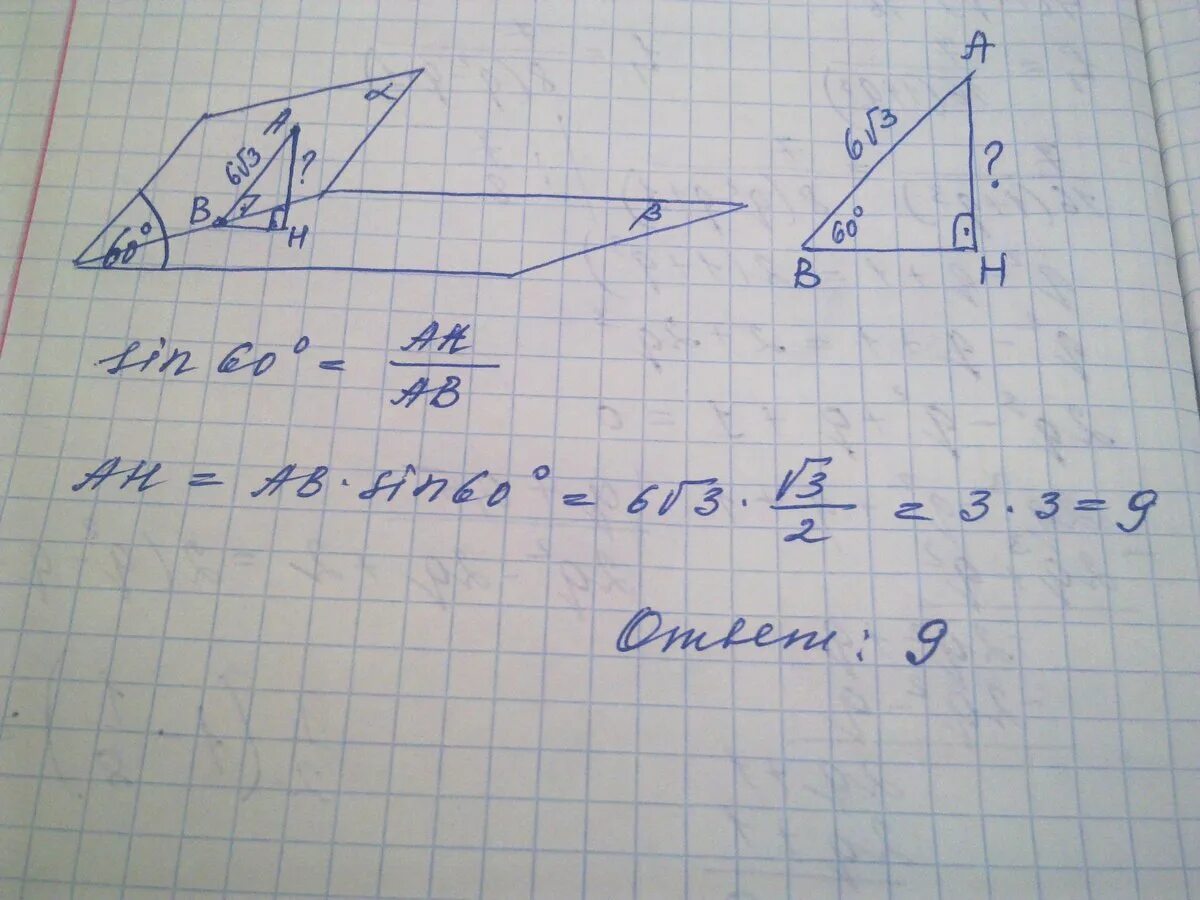 α
A
6√3
?
B
H
60°
β
A
6√3
?
60°
B
H
sin 60° = AH / AB
AH = AB · sin 60° = 6√3 · √3 / 2 = 3 · 3 = 9
Ответ: 9